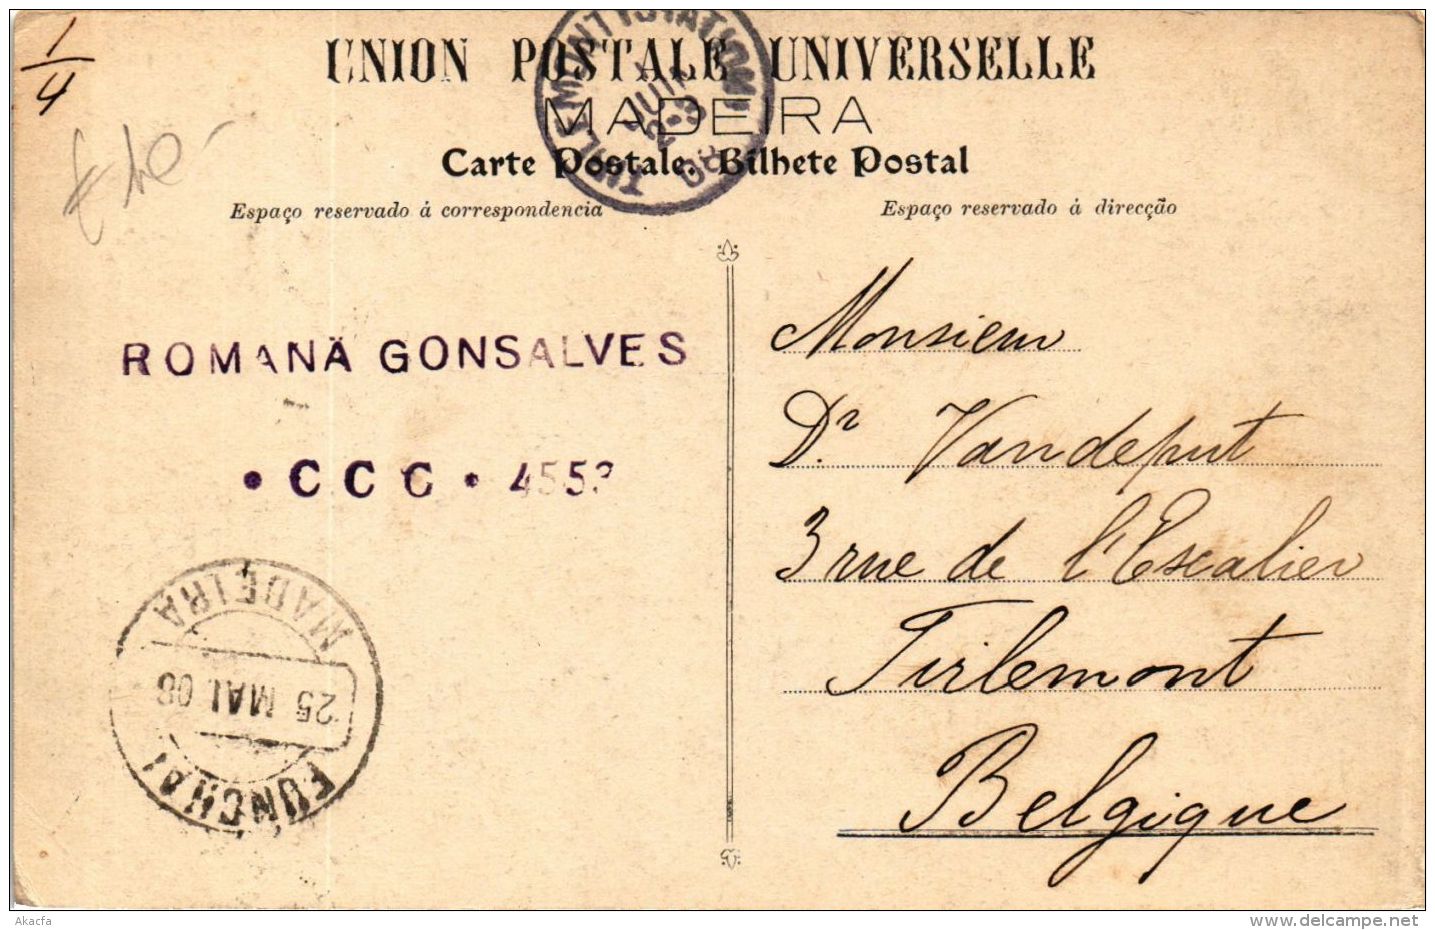 1/4
UNION POSTALE UNIVERSELLE
MADEIRA
Carte Postale. Bilhete Postal
TIRLEMONT (STATION)
JUIN
08
Espaço reservado á correspondencia
Espaço reservado á direcção
ROMANÄ GONSALVES
• CCC • 4553
MADEIRA
25 MAI 08
FUNCHAL
Monsieur
Dr Vandeput
3 rue de l'Escalier
Tirlemont
Belgique
Akacfa
www.delcampe.net